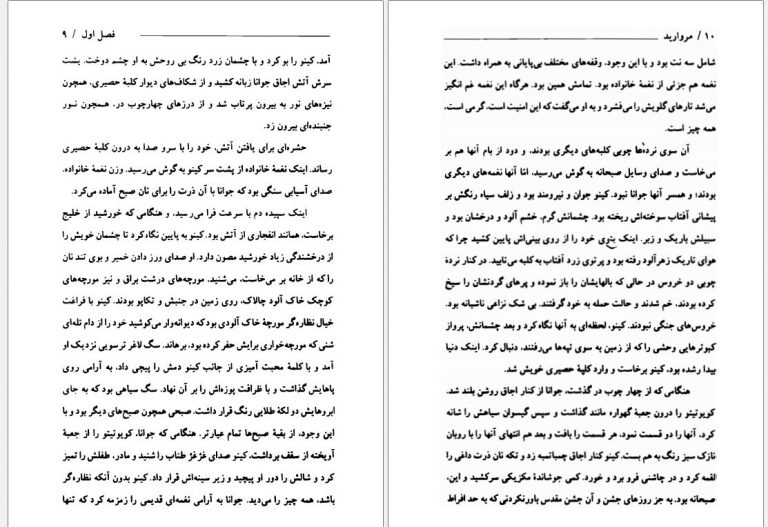 فصل اول / ۹
آمد، کینو را بو کرد و با چشمان زرد رنگ بی روحش به او چشم دوخت. پشت
سرش آتش اجاق جوانا زبانه کشید و از شکاف‌های دیوار کلبهٔ حصیری، همچون
نیزه‌های نور به بیرون پرتاب شد و از درزهای چهارچوب در، همچون نور
جنبنده‌ای بیرون زد.
حشره‌ای برای یافتن آتش، خود را با سرو صدا به درون کلبهٔ حصیری
رساند. اینک نغمهٔ خانواده از پشت سر کینو به گوش می‌رسید. وزن نغمهٔ خانواده،
صدای آسیابی سنگی بود که جوانا با آن ذرت را برای نان صبح آماده می‌کرد.
اینک سپیده دم با سرعت فرا می‌رسید، و هنگامی که خورشید از خلیج
برخاست، همانند انفجاری از آتش بود. کینو به پایین نگاه کرد تا چشمان خویش را
از درخشندگی زیاد خورشید مصون دارد. او صدای ورز دادن خمیر و بوی تند نان
را که از خانه بر می‌خاست، می‌شنید. مورچه‌های درشت براق و نیز مورچه‌های
کوچک خاک آلود چالاک، روی زمین در جنبش و تکاپو بودند. کینو با فراغت
خیال نظاره‌گر مورچهٔ خاک آلودی بود که دیوانه‌وار می‌کوشید خود را از دام تله‌ای
شنی که مورچه‌خواری برایش حفر کرده بود، برهاند. سگ لاغر ترسویی نزدیک او
آمد و با کلمهٔ محبت آمیزی از جانب کینو دمش را پیچی داد، به آرامی روی
پاهایش گذاشت و با ظرافت پوزه‌اش را بر آن نهاد. سگ سیاهی بود که به جای
ابروهایش دو لکهٔ طلایی رنگ قرار داشت. صبحی همچون صبح‌های دیگر بود و با
این وجود، از بقیهٔ صبح‌ها تمام عیارتر. هنگامی که جوانا، کویوتیتو را از جعبهٔ
آویخته از سقف برداشت، کینو صدای غژغژ طناب را شنید و مادر، طفلش را تمیز
کرد و شالش را دور او پیچید و زیر سینه‌اش قرار داد. کینو بدون آنکه نظاره‌گر
باشد، همه چیز را می‌دید. جوانا به آرامی نغمه‌ای قدیمی را زمزمه کرد که تنها
۱۰ / مروارید
شامل سه نت بود و با این وجود، وقفه‌های مختلف بی‌پایانی به همراه داشت. این
نغمه هم جزئی از نغمهٔ خانواده بود. تمامش همین بود. هرگاه این نغمه غم انگیز
می‌شد تارهای گلویش را می‌فشرد و به او می‌گفت که این امنیت است. گرمی است،
همه چیز است.
آن سوی نرده‌ها چوبی کلبه‌های دیگری بودند، و دود از بام آنها هم بر
می‌خاست و صدای وسایل صبحانه به گوش می‌رسید، امّا آنها نغمه‌های دیگری
بودند؛ و همسر آنها جوانا نبود. کینو جوان و نیرومند بود و زلف سیاه رنگش بر
پیشانی آفتاب سوخته‌اش ریخته بود. چشمانش گرم، خشم آلود و درخشان بود و
سبیلش باریک و زبر. اینک پتوی خود را از روی بینی‌اش پایین کشید چرا که
هوای تاریک زهرآلود رفته بود و پرتوی زرد آفتاب به کلبه می‌تابید. در کنار نردهٔ
چوبی دو خروس در حالی که بالهایشان را باز نموده و پرهای گردنشان را سیخ
کرده بودند، خم شدند و حالت حمله به خود گرفتند. بی شک نزاعی ناشیانه بود.
خروس‌های جنگی نبودند. کینو، لحظه‌ای به آنها نگاه کرد و بعد چشمانش، پرواز
کبوترهایی وحشی را که از زمین به سوی تپه‌ها می‌رفتند، دنبال کرد. اینک دنیا
بیدا رشده بود، کینو برخاست و وارد کلبهٔ حصیری خویش شد.
هنگامی که از چهار چوب در گذشت، جوانا از کنار اجاق روشن بلند شد.
کویوتیتو را درون جعبهٔ گهواره مانند گذاشت و سپس گیسوان سیاهش را شانه
کرد. آنها را دو قسمت نمود، هر قسمت را بافت و بعد هم انتهای آنها را با روبان
نازک سبز رنگ به هم بست. کینو کنار اجاق چمباتمه زد و تکه نان ذرت داغی را
لقمه کرد و در چاشنی فرو برد و خورد. کمی جوشاندهٔ مکزیکی سرکشید و این،
صبحانه بود. به جز روزهای جشن و آن جشن مقدس باورنکردنی که به حد افراط